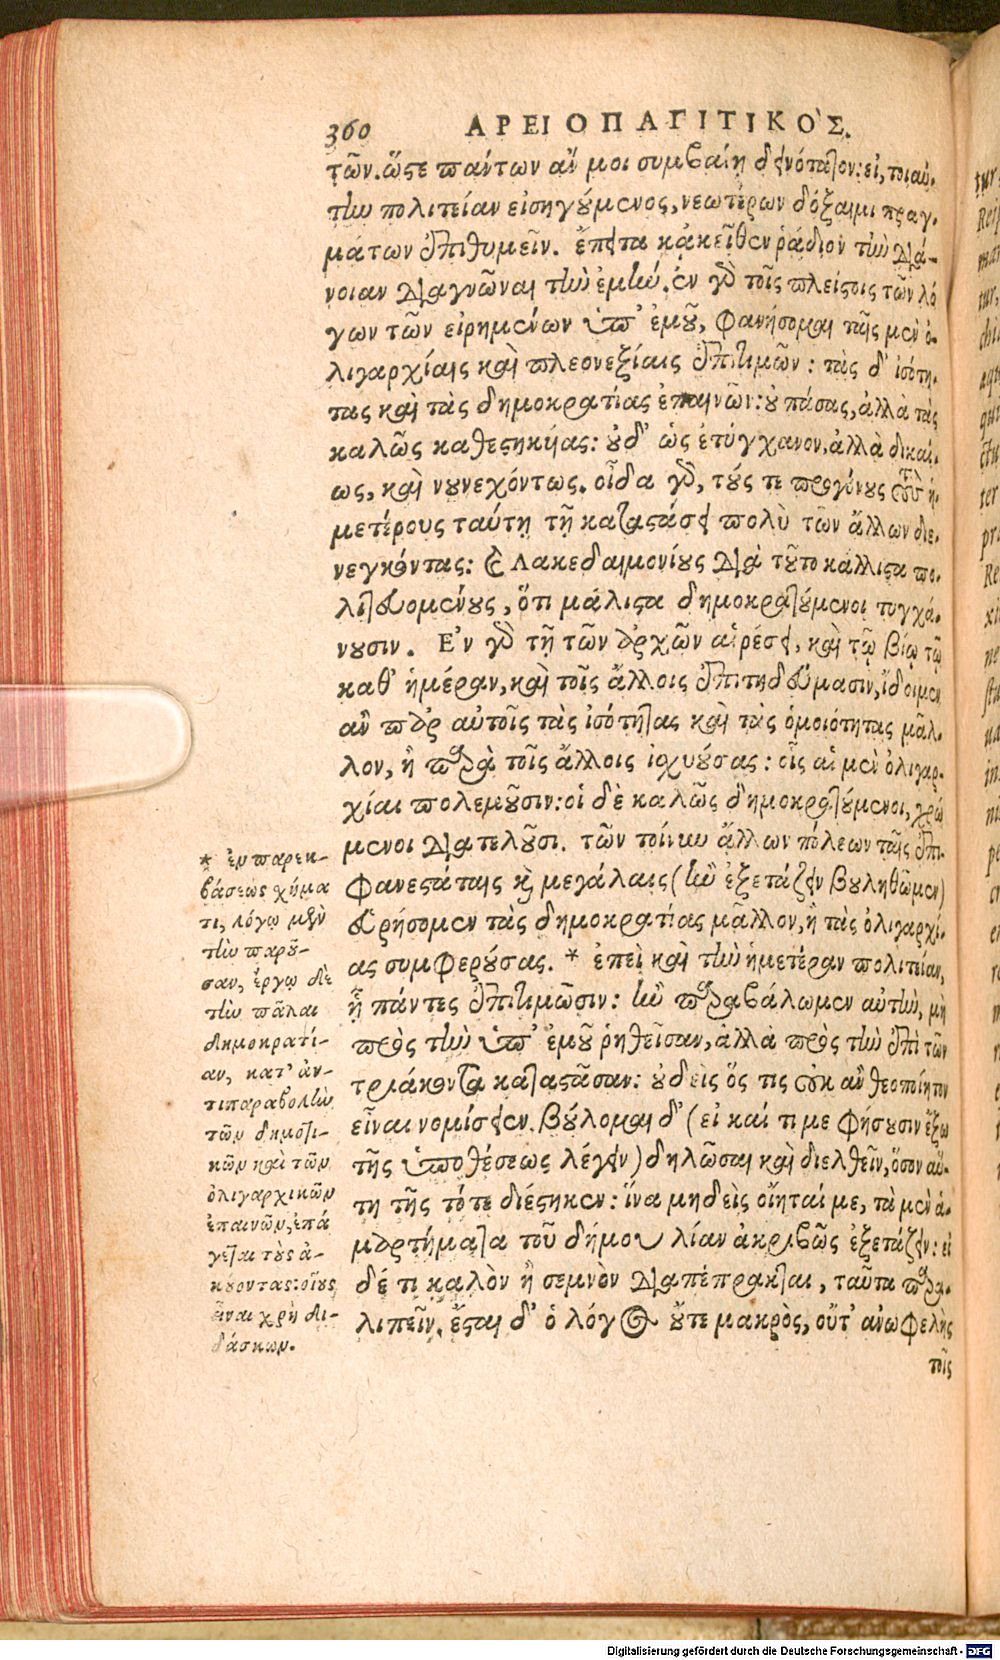 360 ΑΡΕΙΟΠΑΓΙΤΙΚΟ`Σ.
τῶν. ὥςε πάντων ἄν μοι συμβαίη δεινότατον: εἰ, τοιαύ-
τὴν πολιτείαν εἰσηγούμενος, νεωτέρων δόξαιμι πραγ-
μάτων ἐπιθυμεῖν. ἔπειτα κἀκεῖθεν ῥάδιον τὴν διά-
νοιαν διαγνῶναι τὴν ἐμήν. ἐν γὰρ τοῖς πλείςοις τῶν λό
γων τῶν εἰρημένων ὑπ' ἐμοῦ, φανήσομαι ταῖς μὲν ὀ-
λιγαρχίαις καὶ πλεονεξίαις ἐπιτιμῶν: τὰς δ' ἰσότη-
τας καὶ τὰς δημοκρατίας ἐπαινῶν: οὐ πάσας, ἀλλὰ τὰς
καλῶς καθεςηκυίας: οὐδ' ὡς ἐτύγχανον, ἀλλὰ δικαί-
ως, καὶ νουνεχόντως. οἶδα γὰρ, τούς τε προγόνους τοὺς ἡ-
μετέρους ταύτῃ τῇ καταςάσει πολὺ τῶν ἄλλων διε-
νεγκόντας: καὶ Λακεδαιμονίους διὰ τοῦτο κάλλιςα πο-
λιτευομένους, ὅτι μάλιςα δημοκρατούμενοι τυγχά-
νουσιν. Ἐν γὰρ τῇ τῶν ἀρχῶν αἱρέσει, καὶ τῷ βίῳ τῷ
καθ' ἡμέραν, καὶ τοῖς ἄλλοις ἐπιτηδεύμασιν, ἴδοιμεν
ἂν παρ' αὐτοῖς τὰς ἰσότητας καὶ τὰς ὁμοιότητας μᾶλ-
λον, ἢ παρὰ τοῖς ἄλλοις ἰχυούσας: οἷς αἱ μὲν ὀλιγαρ-
χίαι πολεμοῦσιν: οἱ δὲ καλῶς δημοκρατούμενοι, χρώ
μενοι διατελοῦσι. τῶν τοίνυν ἄλλων πόλεων ταῖς ἐπι-
φανεςάταις καὶ μεγάλαις (ἢν ἐξετάζειν βουληθῶμεν)
εὑρήσομεν τὰς δημοκρατίας μᾶλλον, ἢ τὰς ὀλιγαρχί-
ας συμφερούσας. * ἐπεὶ καὶ τὴν ἡμετέραν πολιτείαν,
ᾗ πάντες ἐπιτιμῶσιν: ἢν παραβάλωμεν αὐτὴν, μὴ
πρὸς τὴν ὑπ' ἐμοῦ ῥηθεῖσαν, ἀλλὰ πρὸς τὴν ἐπὶ τῶν
τριάκοντα καταςᾶσαν: οὐδεὶς ὅς τις οὐκ ἂν θεοποίητον
εἶναι νομίσειεν. βούλομαι δ' (εἰ καί τι με φήσουσιν ἔξω
τῆς ὑποθέσεως λέγειν) δηλῶσαι καὶ διελθεῖν, ὅσον αὕ-
τη τῆς τότε διέςηκεν: ἵνα μηδεὶς οἴηταί με, τὰ μὲν ἁ-
μαρτήματα τοῦ δήμου λίαν ἀκριβῶς ἐξετάζειν: εἰ
δέ τι καλὸν ἢ σεμνὸν διαπέπρακται, ταῦτα παρα-
λιπεῖν. ἔςαι δ' ὁ λόγος οὔτε μακρὸς, οὔτ' ἀνωφελὴς
τοῖς
* ἐν παρεκ-
βάσεως χήμα
τι, λόγῳ μὲν
τὴν παροῦ-
σαν, ἔργῳ δὲ
τὴν πάλαι
δημοκρατί-
αν, κατ' ἀν-
τιπαραβολὴν
τῶν δημοτι-
κῶν καὶ τῶν
ὀλιγαρχικῶν
ἐπαινῶν, ἐπά
γεται τοὺς ἀ-
κούοντας: οἵους
εἶναι χρὴ δι-
δάσκων.
Digitalisierung gefördert durch die Deutsche Forschungsgemeinschaft - DFG